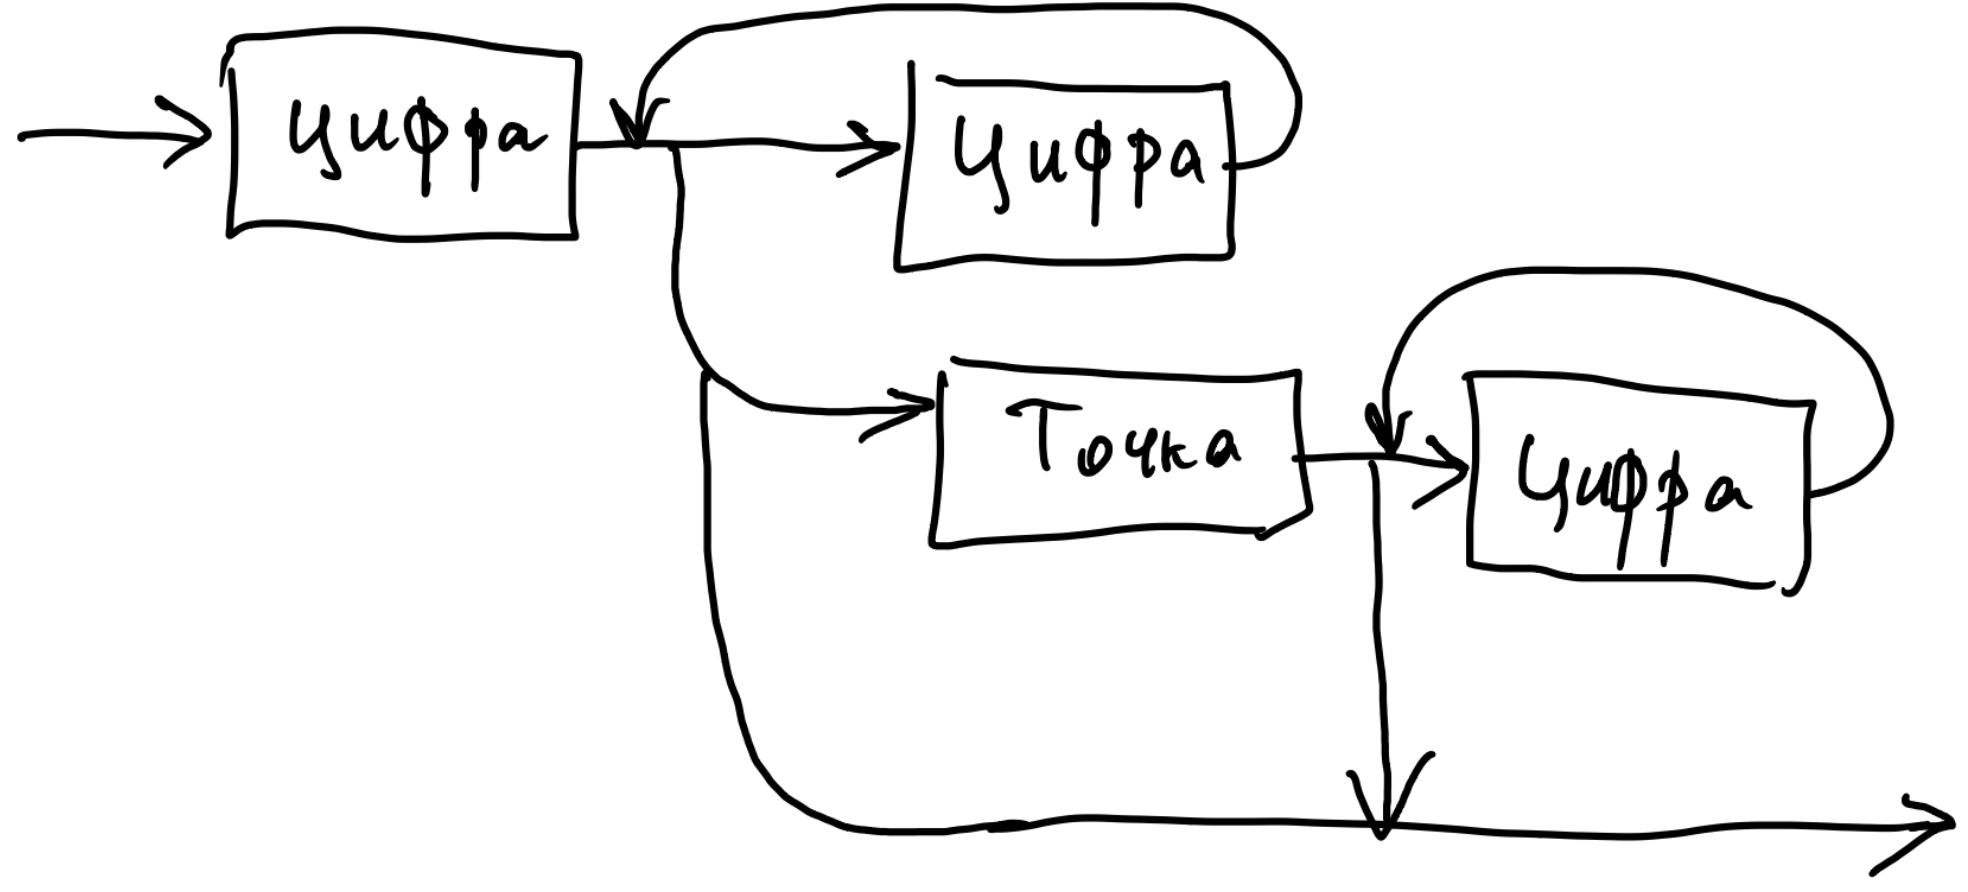 Цифра
Цифра
Точка
Цифра